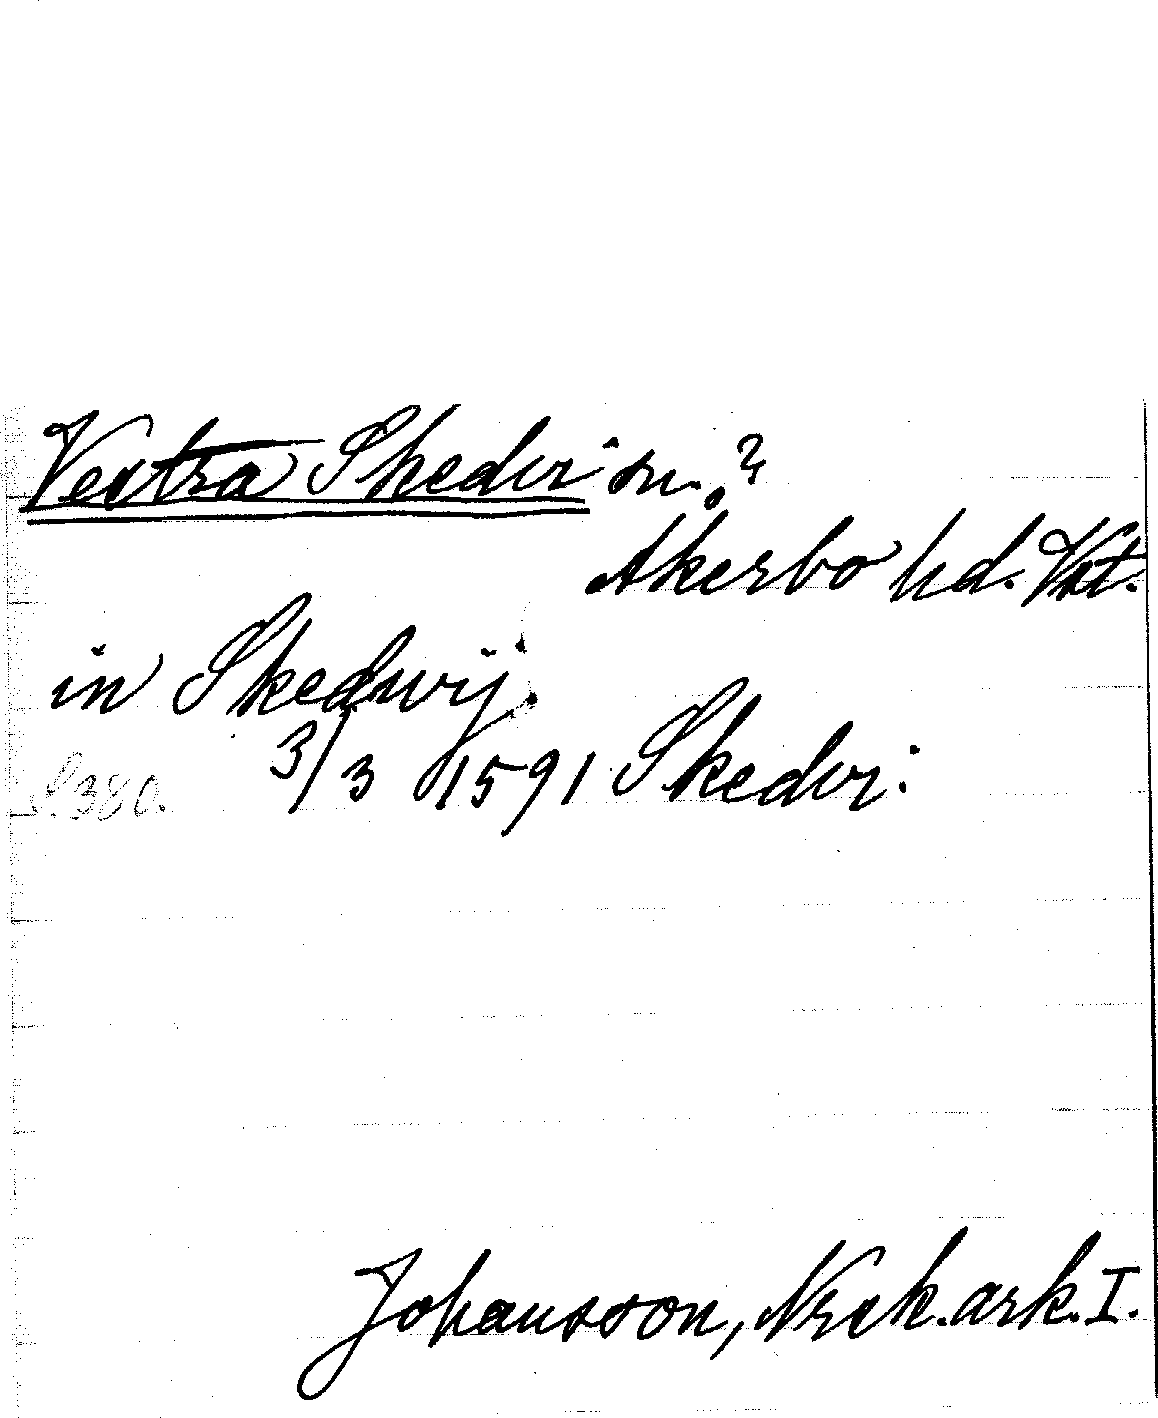 Vestra Skedvi sn.?
Åkerbo hd. Vst.
in Skedwij.
S.380. 3/3 1591 Skedvi.
Johansson, Nrck. ark. I.